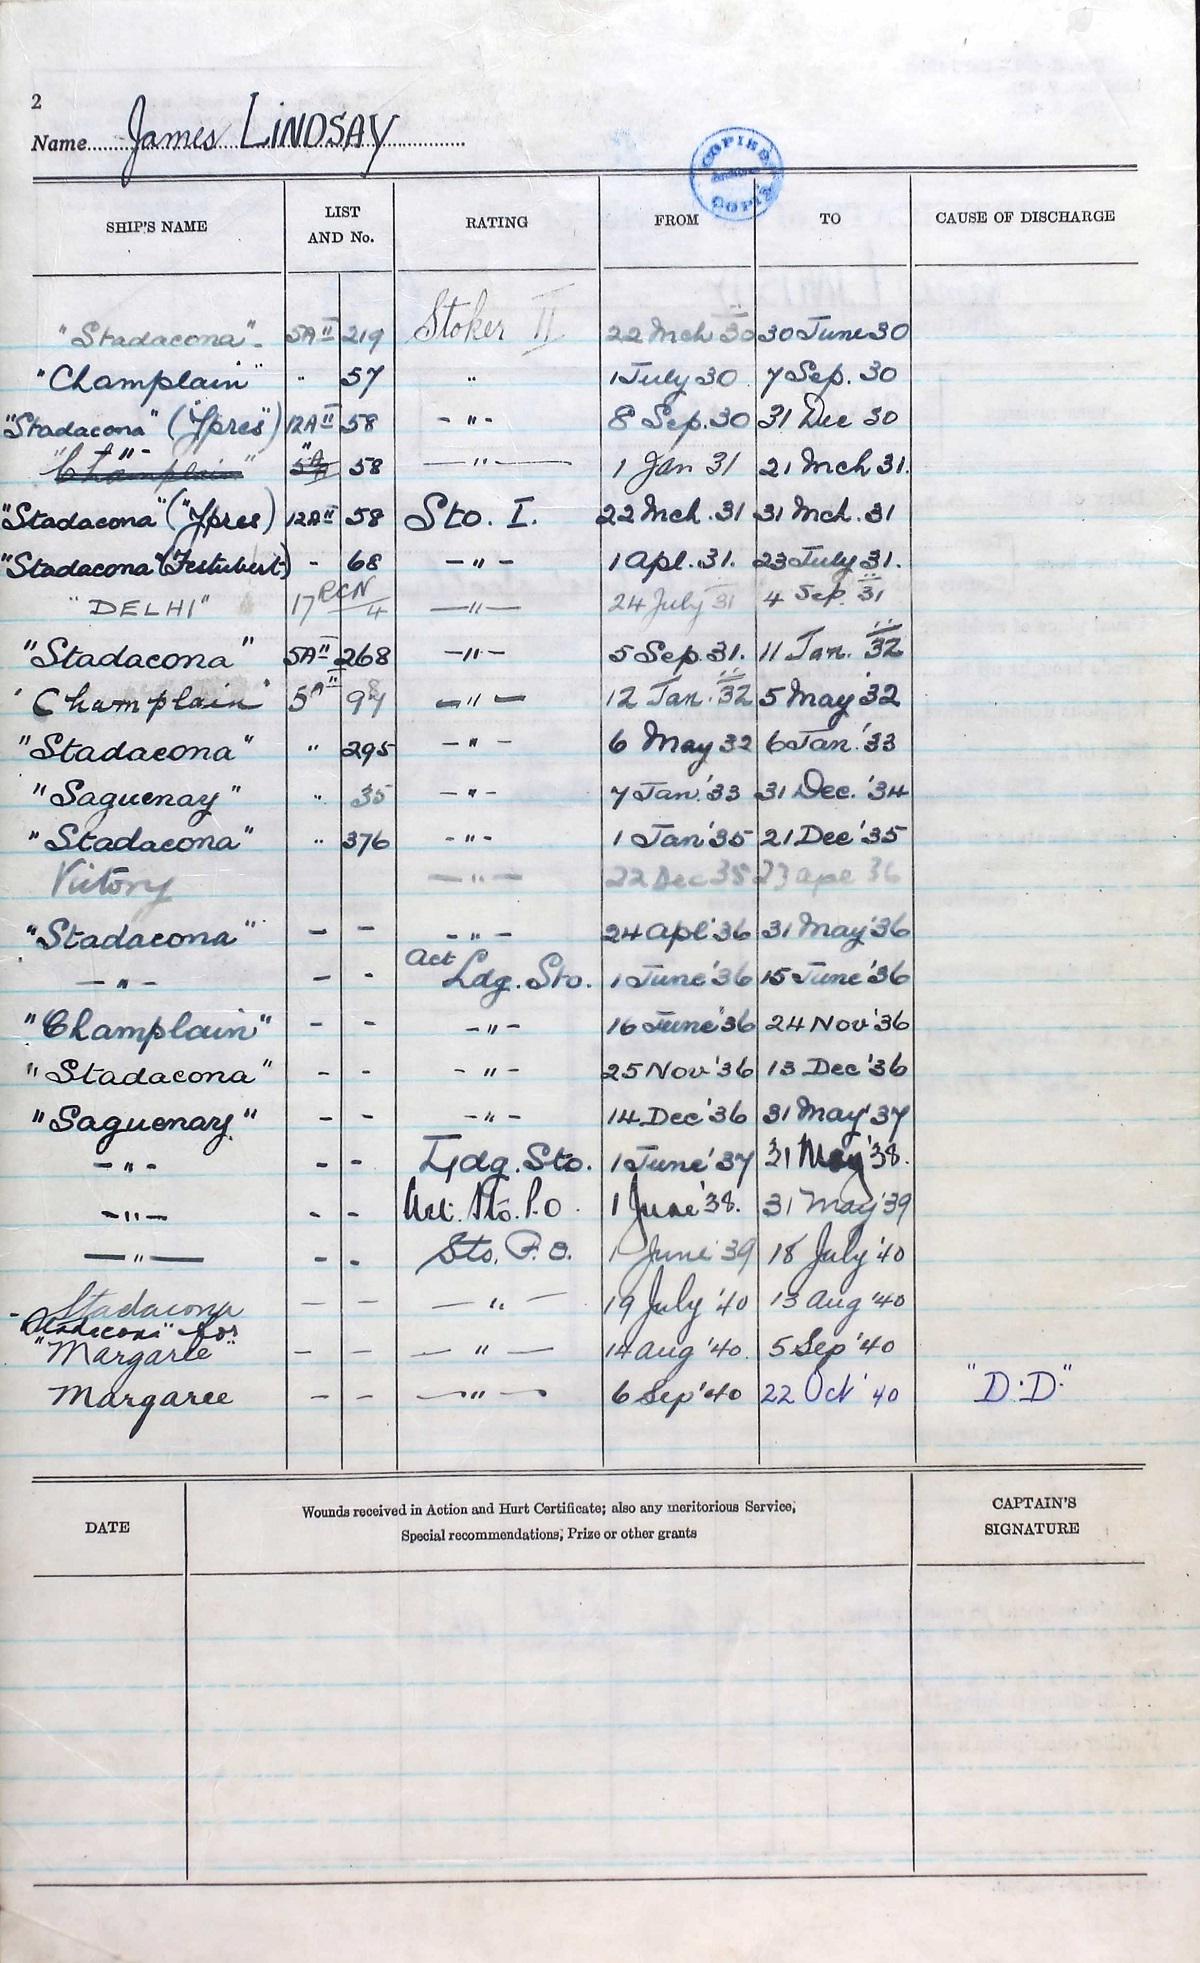 2
Name James LINDSAY
COPIED
COPIÉ
SHIP'S NAME LIST AND No. RATING FROM TO CAUSE OF DISCHARGE
"Stadacona" 5A II 219 Stoker II 22 Mch 30 30 June 30
"Champlain" " 57 " 1 July 30 7 Sep. 30
"Stadacona" ("Ypres") 12A II 58 - " - 8 Sep. 30 31 Dec 30
- " - "Champlain" " 5A 58 - " - 1 Jan 31 21 Mch 31.
"Stadacona" ("Ypres) 12A II 58 Sto. I. 22 Mch. 31 31 Mch. 31
"Stadacona" (Festubert) - 68 - " - 1 Apl. 31. 23 July 31.
"DELHI" 17 RCN/4 - " - 24 July 31 4 Sep. 31
"Stadacona" 5A II 268 - " - 5 Sep. 31. 11 Jan. 32
"Champlain" 5A II - " - 12 Jan. 32 5 May '32
"Stadacona" " 295 - " - 6 May 32 6 Jan. '33
"Saguenay" " 35 - " - 7 Jan. '33 31 Dec. '34
"Stadacona" " 376 - " - 1 Jan '35 21 Dec '35
Victory - " - 22 Dec 35 23 Apl 36
"Stadacona" - - - " - 24 Apl '36 31 May '36
- " - - - Act Ldg. Sto. 1 June '36 15 June '36
"Champlain" - - - " - 16 June '36 24 Nov '36
"Stadacona" - - - " - 25 Nov '36 13 Dec '36
"Saguenay" - - - " - 14 Dec '36 31 May '37
- " - - - Ldg. Sto. 1 June '37 31 May '38.
- " - - - Act. Sto. P.O. 1 June '38. 31 May '39
- " - - - Sto. P.O. 1 June '39 18 July '40
Stadacona - - - " - 19 July '40 13 Aug '40
"Stadacona" for
"Margaree" - - - " - 14 Aug '40. 5 Sep '40
Margaree - - - " - 6 Sep '40 22 Oct '40 "D.D."
DATE Wounds received in Action and Hurt Certificate; also any meritorious Service, Special recommendations, Prize or other grants CAPTAIN'S SIGNATURE